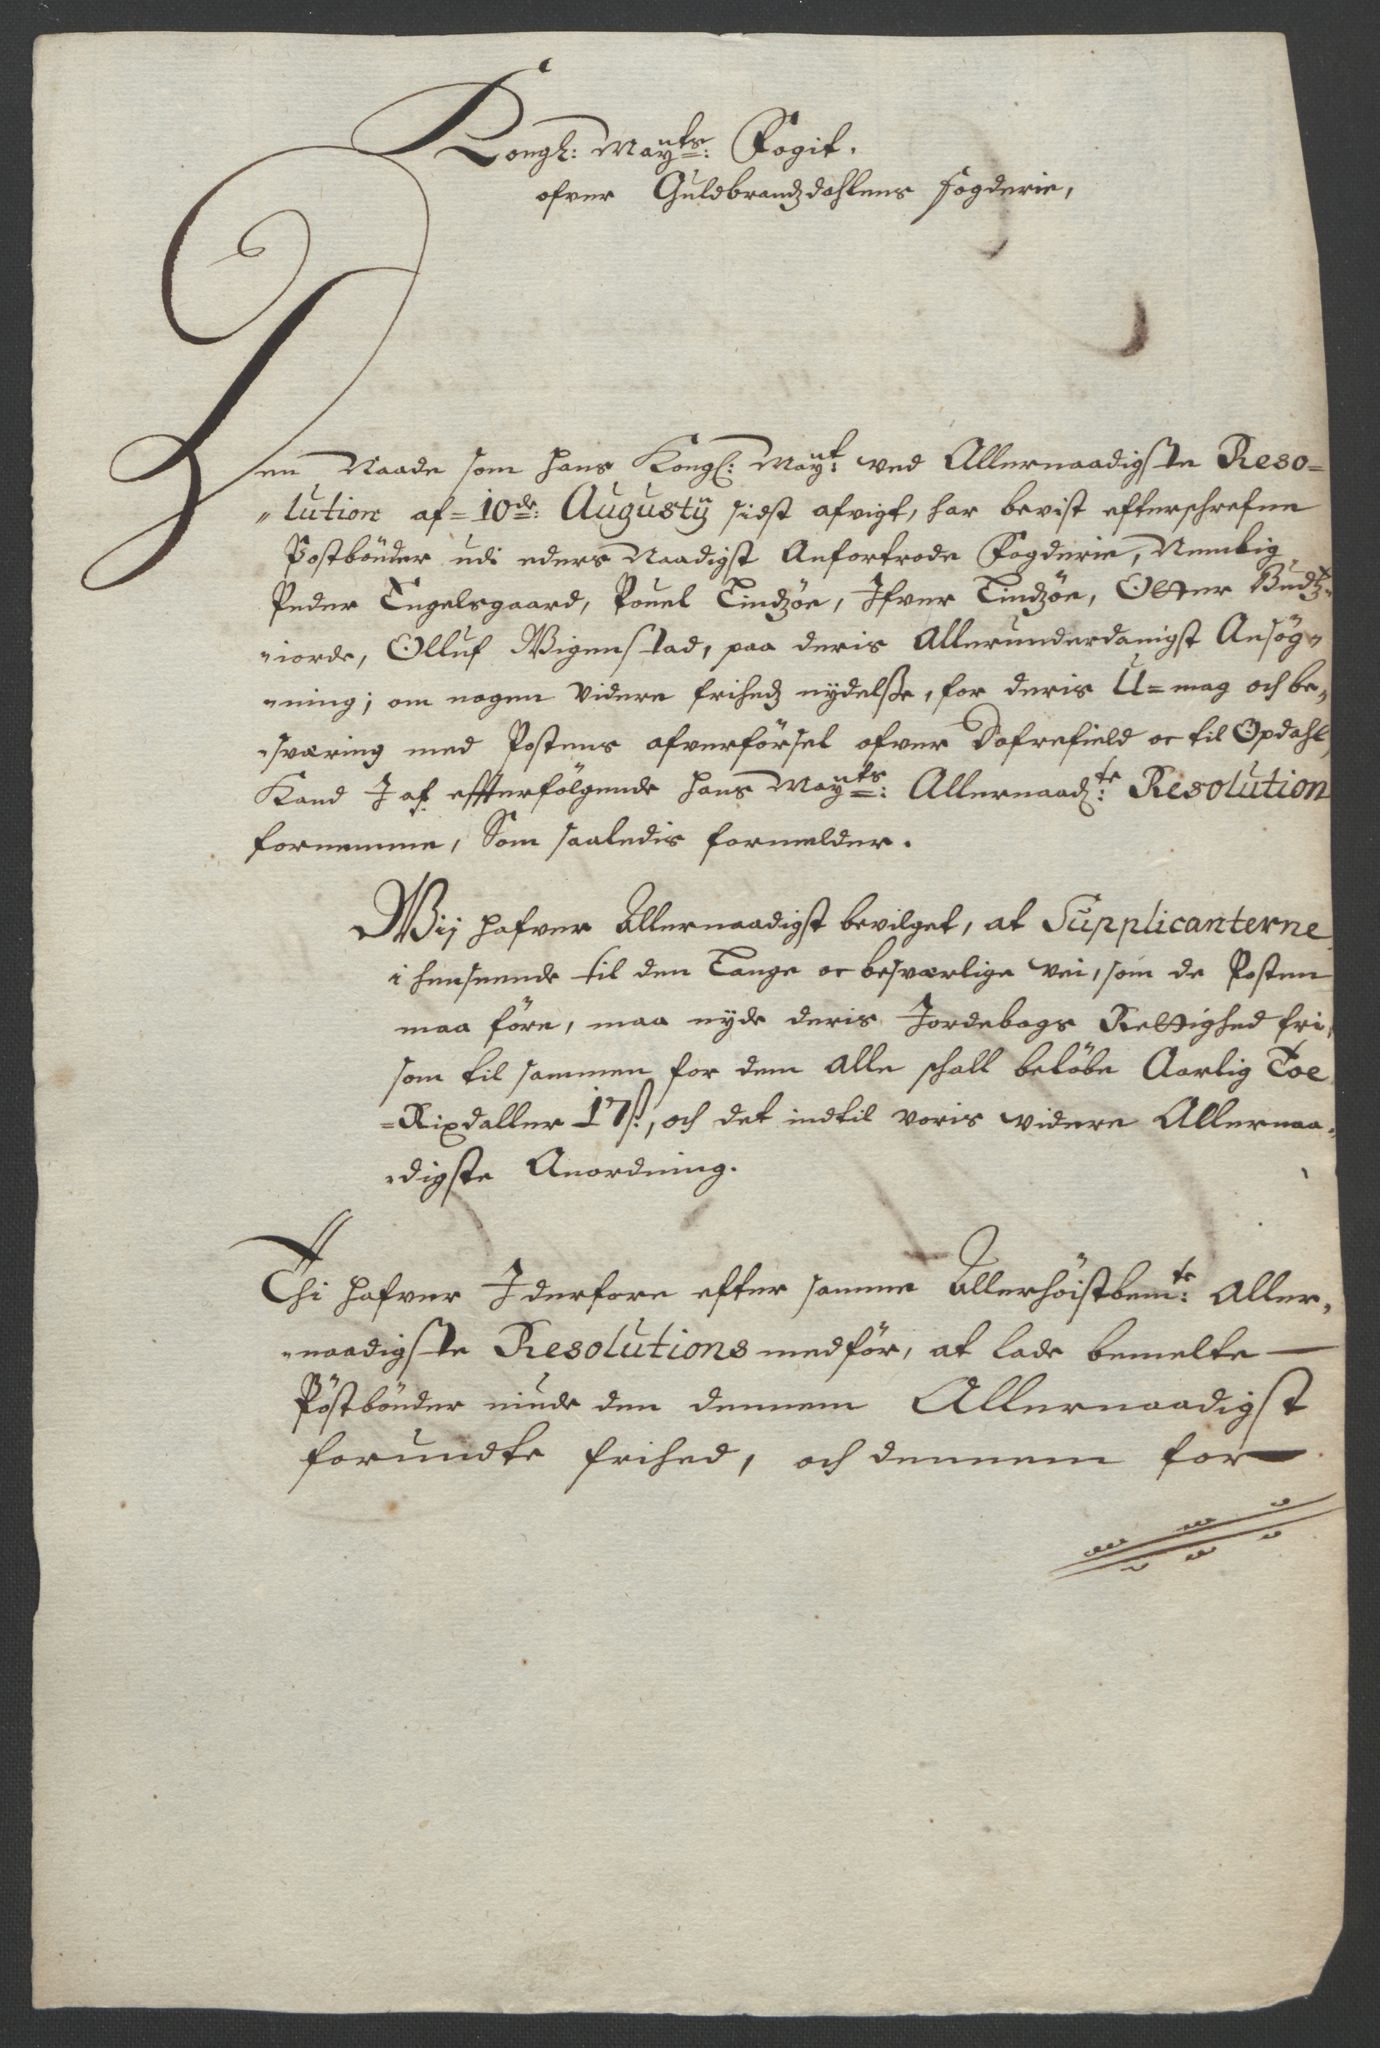 Kongl: Mayts: Fogit.
ofver Guldbrandzdahlens fogderie,
Den Naade som hans Kongl: Mayt: ved Allernaadigste Reso=
lution af 10de: Augustij sidst afvigt, har bevist efterschrefne
Postbönder udi eders Naadigst Anfortrode Fogderie, Nemblig
Peder Tengelsgaard, Pouel Tindzöe, Ifver Tindzöe, Otter Budz=
iorde, Olluf Wigenstad, paa deris Allerunderdanigst Ansög=
ning; om nogen videre frihedz nydelsse, for deris U=mag och be=
sværing med Postens afverförsel ofver Dofrefield oc til Opdahl,
Kand I af effterfölgende hans Mayts: Allernaad:te Resolution
fornemme, Som saaledis formelder.
Wij hafver Allernaadigst bevilget, at Supplicanterne
i henseende til den Lange oc besværlige vei, som de Posten
maa före, maa nyde deris Jordebogs Rettighed fri,
som til sammen for dem alle schall belöbe Aarlig Toe
Rixdaller 17 ß:, och det indtil voris videre Allernaa=
digste Anordning.
Thi hafver I derfore efter samme Allerhöistbem:te Aller=
naadigste Resolutions medför, at lade bemelte
Postbönder niude den dennem Allernaadigst
forundte frihed, och dennem for